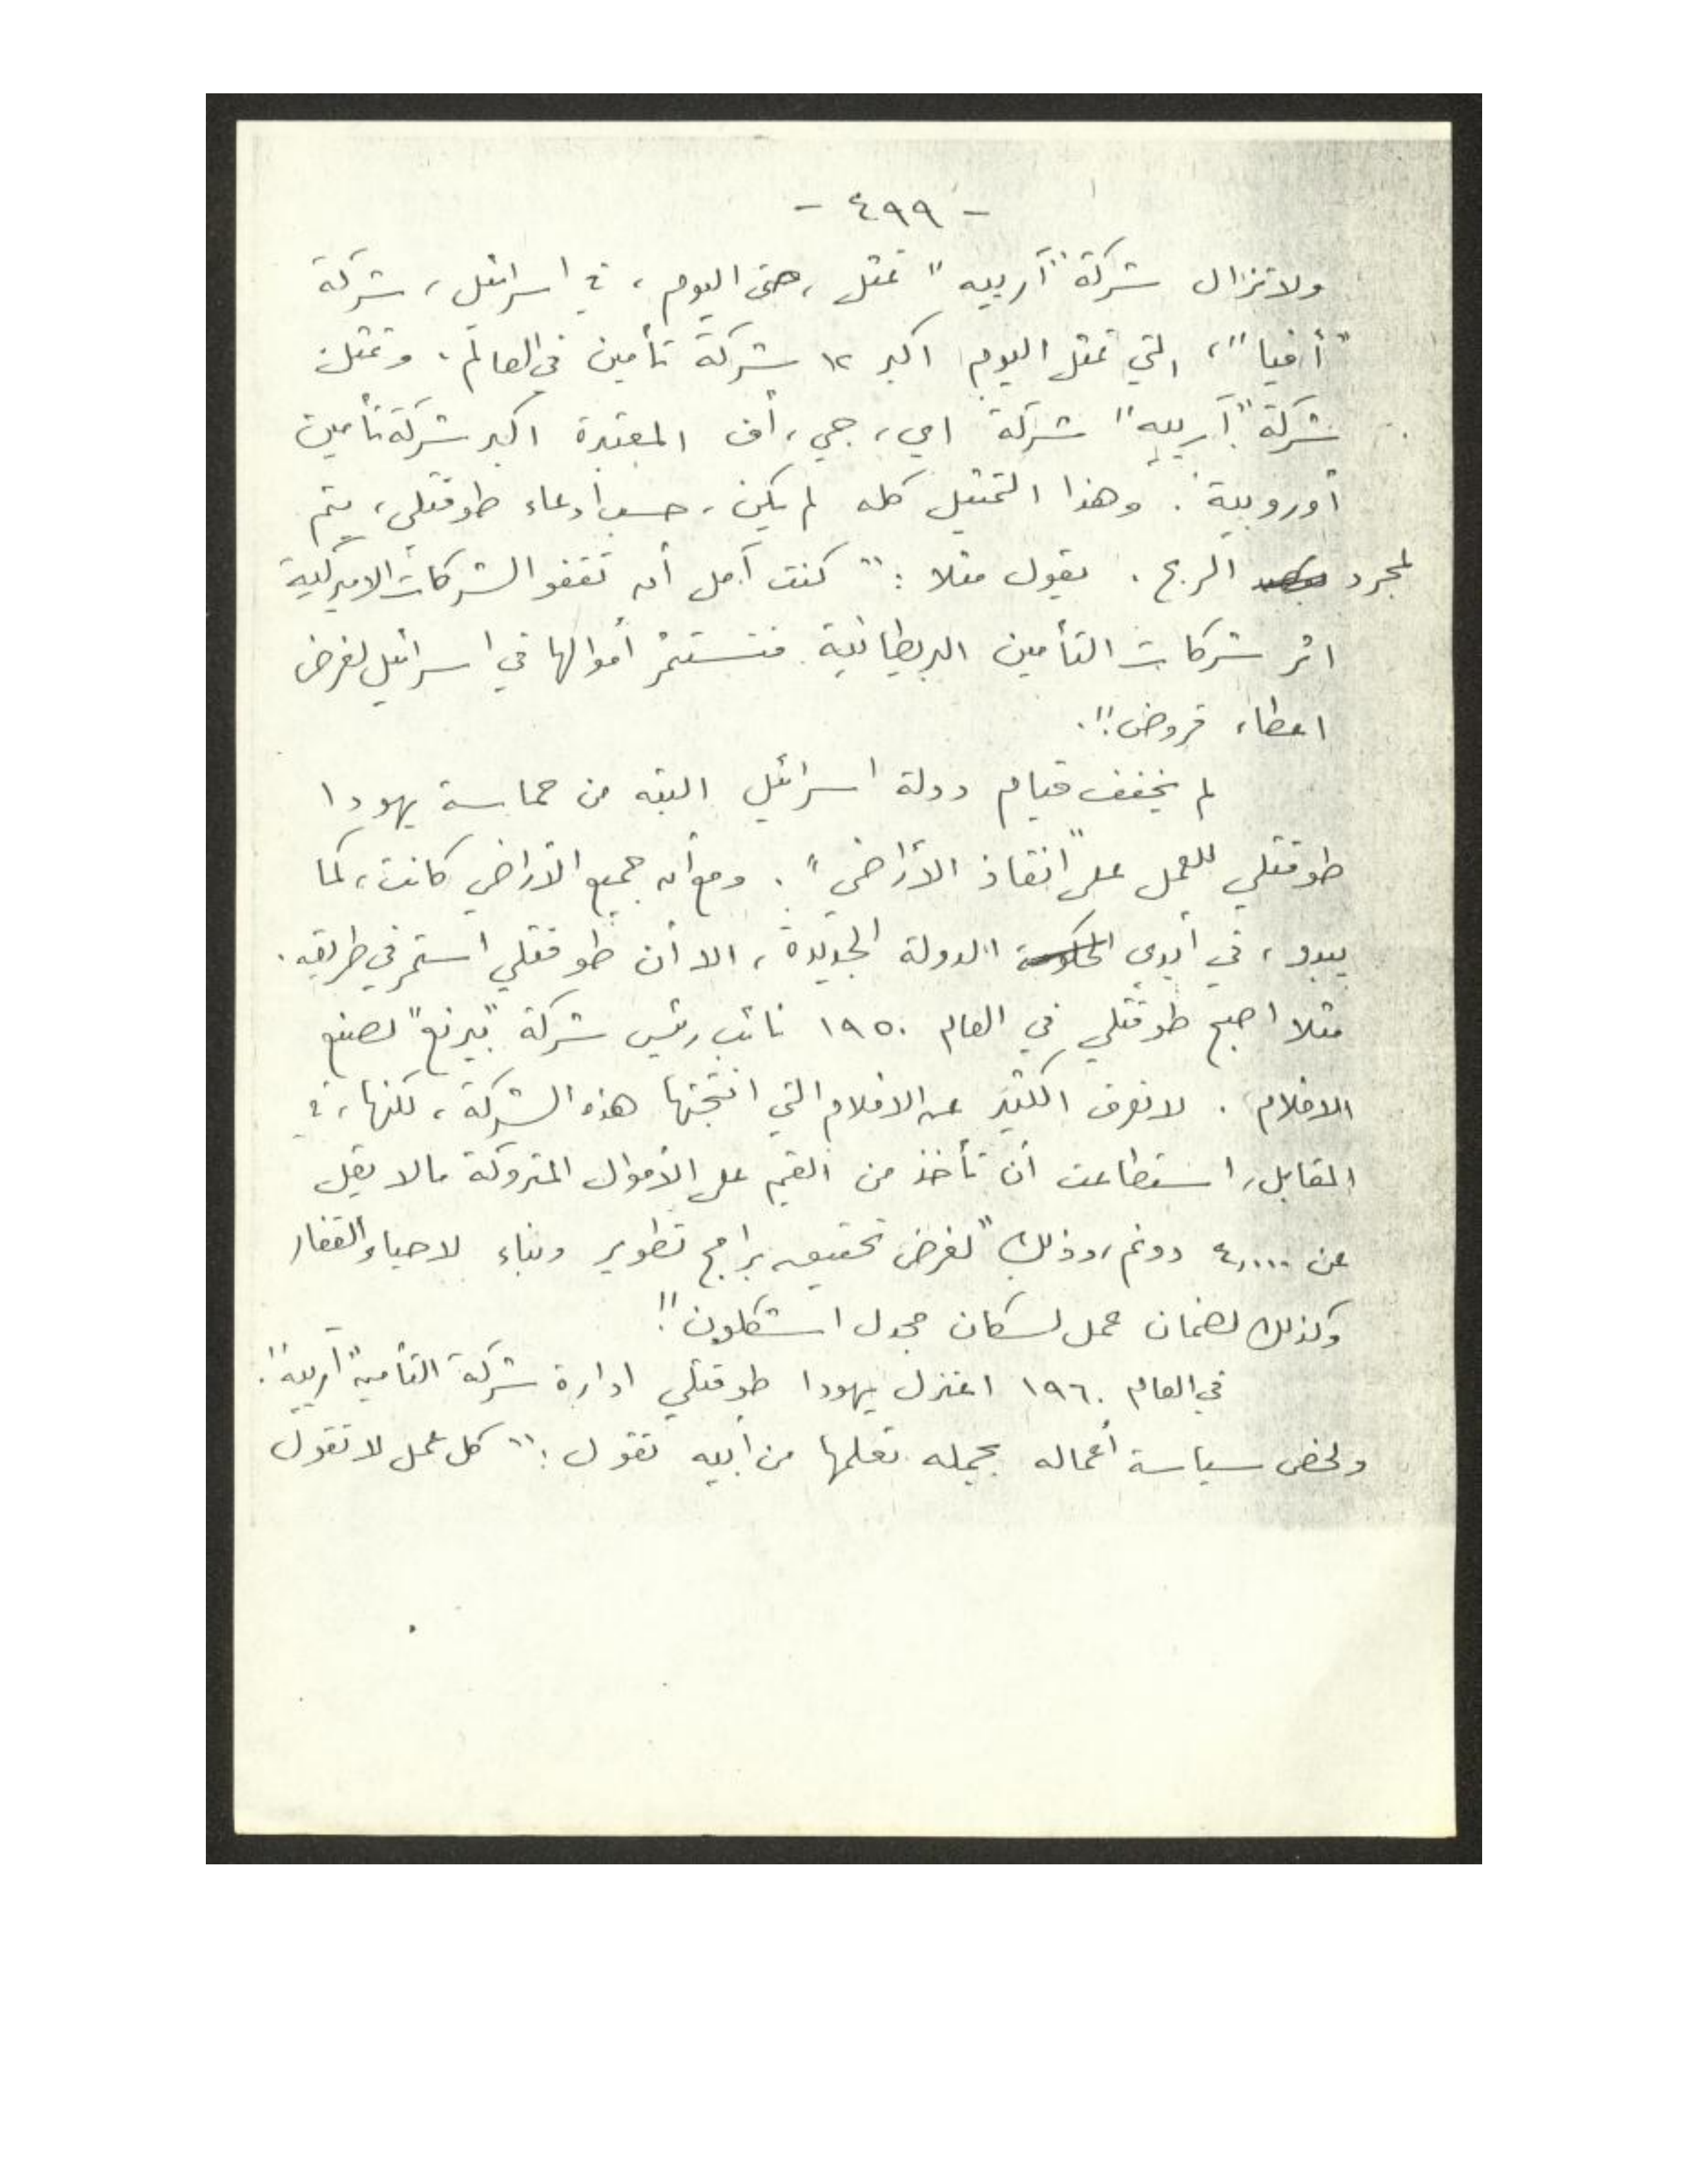 - ٤٩٩ -
ولا تزال شركة "آرييه" تمثل، حتى اليوم، في اسرائيل، شركة
"أفيا"، التي تمثل اليوم اكبر ١٢ شركة تأمين في العالم، وتمثل
شركة "آرييه" شركة اي، جي، أف المعتبرة اكبر شركة تأمين
أوروبية. وهذا التمثيل كله لم يكن، حسب أدعاء طوفتلي، يتم
لمجرد الربح. يقول مثلا: "كنت آمل أن تقفو الشركات الاميركية
اثر شركات التأمين البريطانية فتستثمر أموالها في اسرائيل لغرض
اعطاء قروض".
لم يخفف قيام دولة اسرائيل البته من حماسة يهودا
طوفتلي للعمل على "انقاذ الأراضي". ومع أن جميع الأراضي كانت، كما
يبدو، في أيدي الحكومة الدولة الجديدة، الا أن طوفتلي استمر في طريقه.
مثلا اصبح طوفتلي في العام ١٩٥٠ نائب رئيس شركة "بيرنع" لصنع
الافلام. لا نعرف الكثير عن الافلام التي انتجتها هذه الشركة، لكنها، في
المقابل، استطاعت أن تأخذ من القيم على الأموال المتروكة ما لا يقل
عن ٤,٠٠٠ دونم، وذلك "لغرض تحقيق برامج تطوير وبناء لاحياء القفار
وكذلك لضمان عمل لسكان مجدل اشكلون".
في العام ١٩٦٠ اعتزل يهودا طوفتلي ادارة شركة التأمين "آرييه".
ولخص سياسة أعماله بجمله تعلمها من أبيه تقول: "كل عمل لا تقول